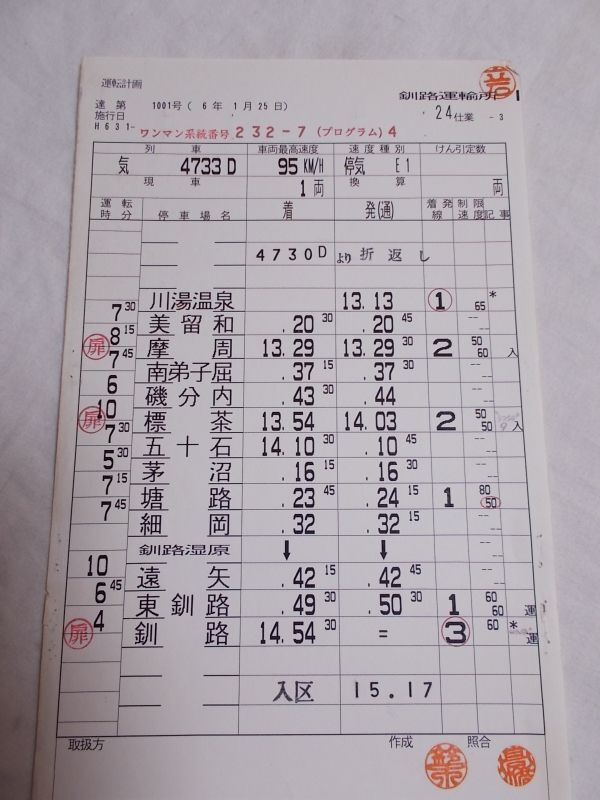 運転計画
釧路運輸所
達 第 1001号( 6 年 1 月 25 日)
施行日
24 仕業 -3
H631-
ワンマン系統番号 232-7 (プログラム) 4
列 車 車両最高速度 速度種別 けん引定数
気 4733D 95KM/H 停気 E1
現 車 1両 換 算 両
運転時分 停車場名 着 発(通) 着発線 制限速度 記事
4730D より 折返し
川湯温泉 13.13 ① 65 *
7 30
美留和 .20 30 .20 45 --
8 15
扉 摩周 13.29 13.29 30 2 50 60 入
7 45
南弟子屈 .37 15 .37 30 --
6
磯分内 .43 30 .44 --
10
扉 標茶 13.54 14.03 2 50 50 入
7 30
五十石 14.10 30 .10 45 --
5 30
茅沼 .16 15 .16 30 --
7 15
塘路 .23 45 .24 15 1 80 50
7 45
細岡 .32 .32 15 --
釧路湿原 ↓ ↓
10
遠矢 .42 15 .42 45 --
6 45
東釧路 .49 30 .50 30 1 60 60 運
4
扉 釧路 14.54 30 = ③ 60 * 運
入区 15.17
取扱方 作成 照合